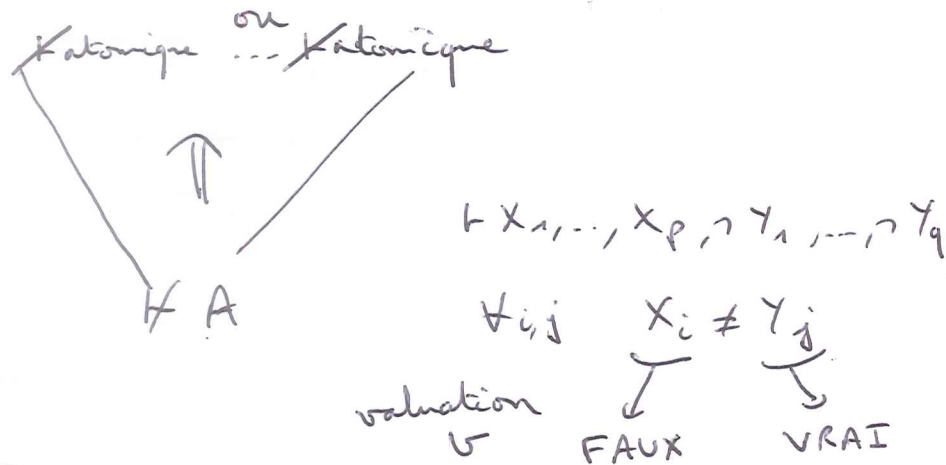 ou
⊬ atomique ... ⊬ atomique
⇑
⊬ A
⊢ X₁, ..., Xₚ, ¬Y₁, ..., ¬Y_q
∀i,j Xᵢ ≠ Yⱼ
valuation
v FAUX VRAI